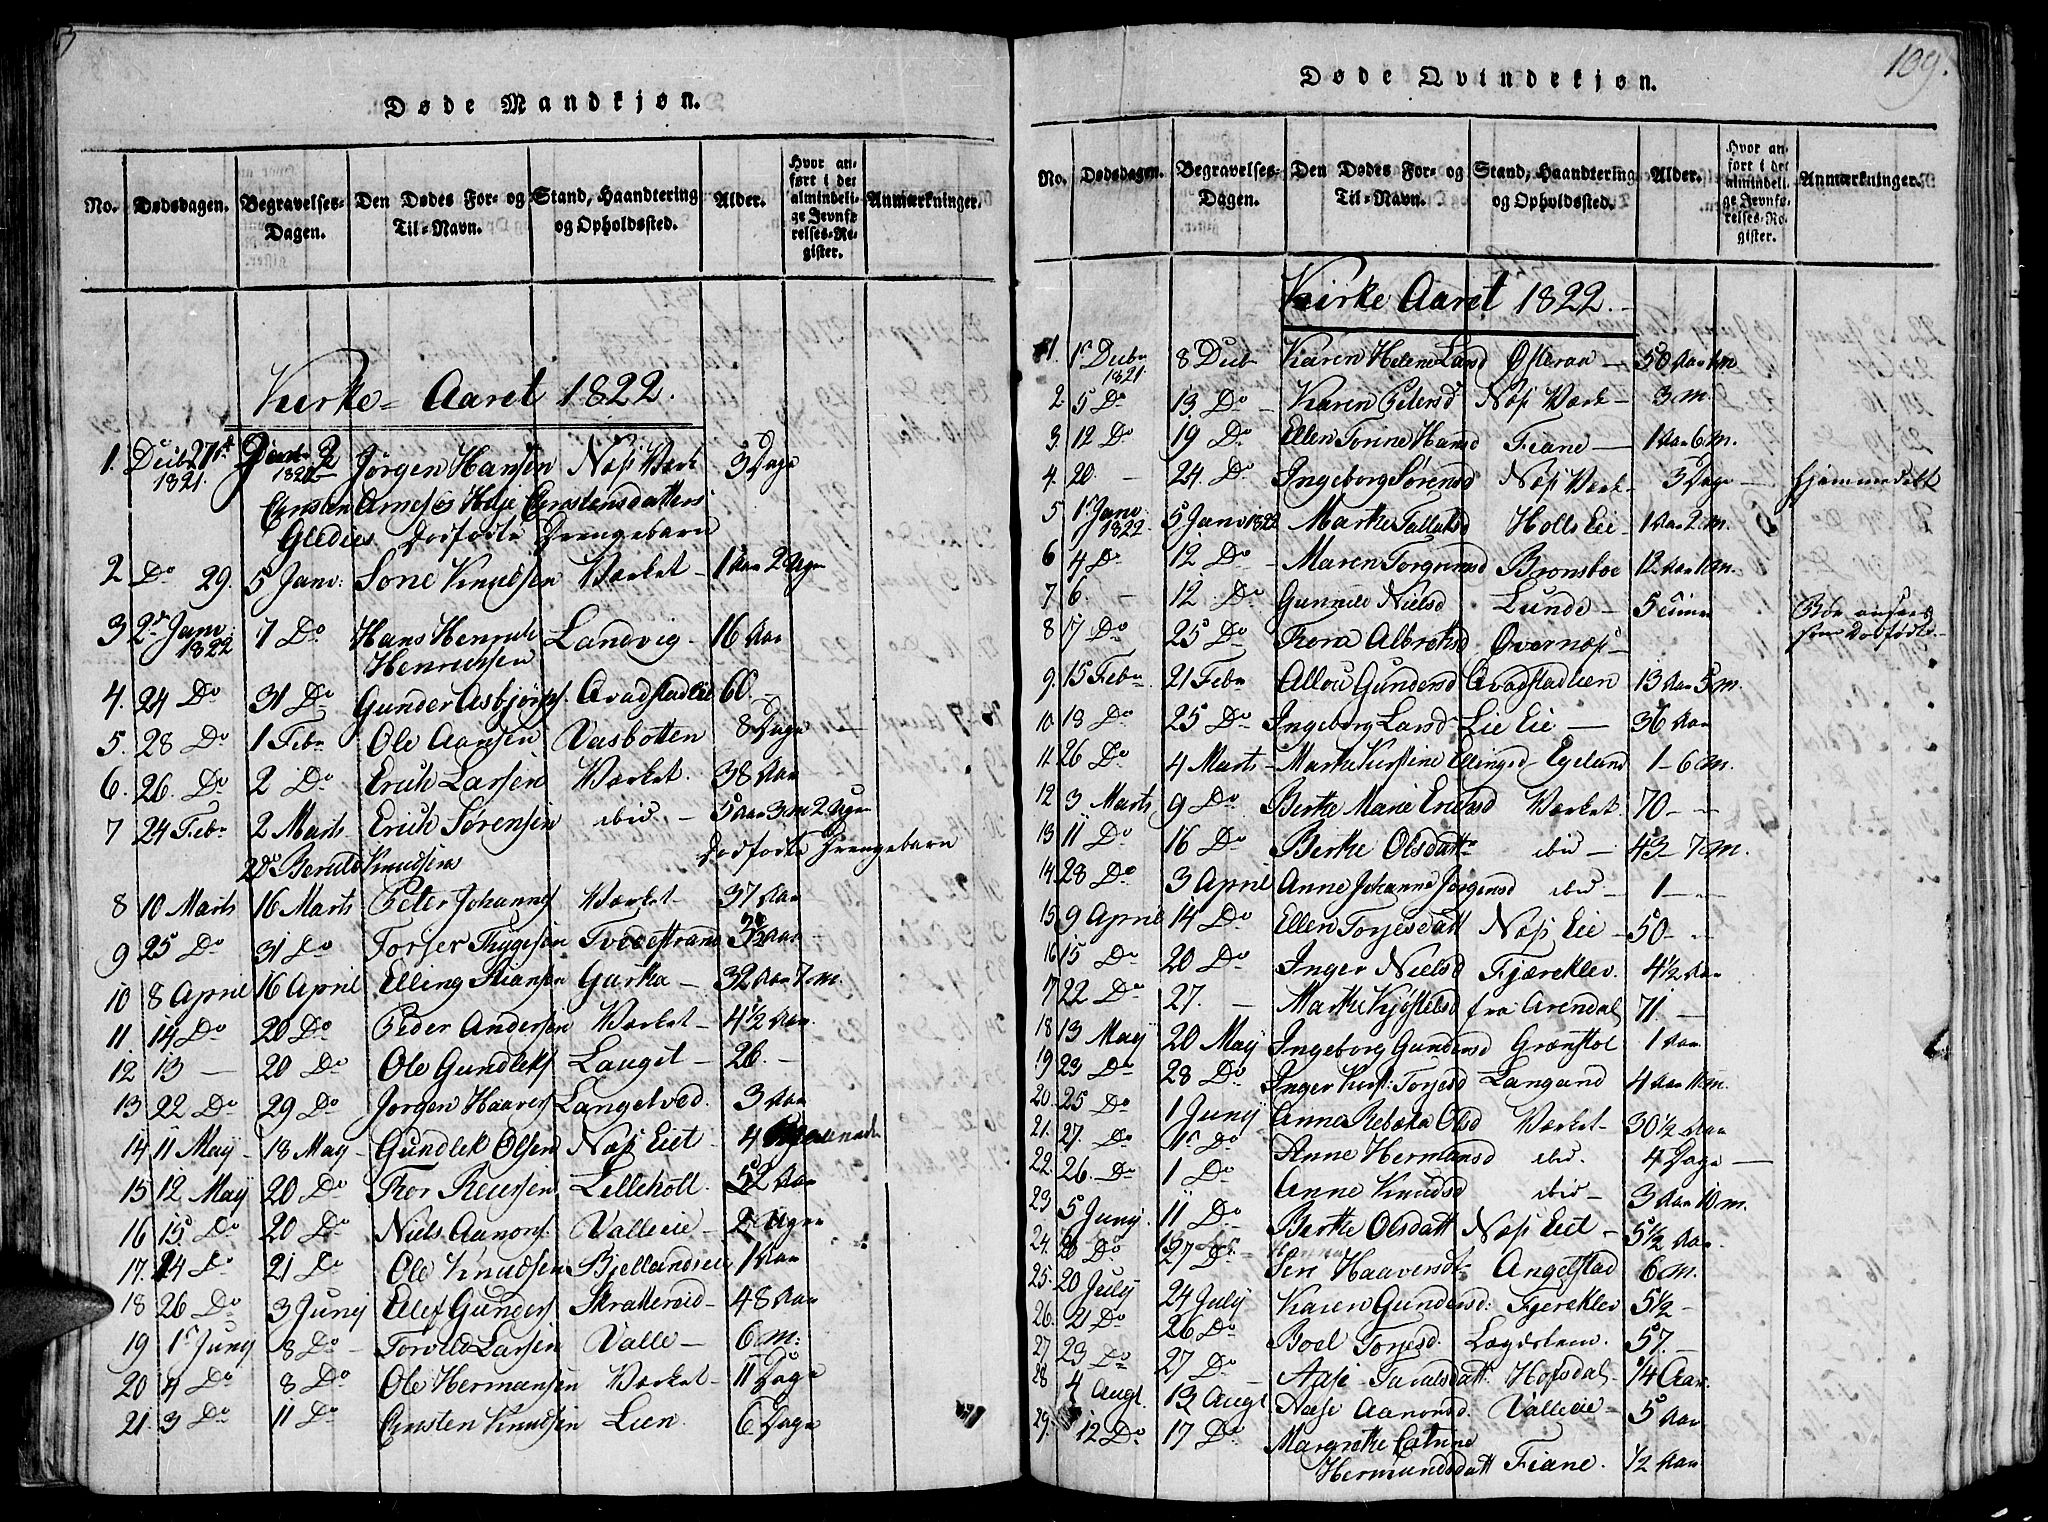 109.
Døde Mandkjøn.
No. Dødsdagen. Begravelses-Dagen. Den Dødes For- og Til-Navn. Stand, Haandtering og Opholdssted. Alder. Hvor anført i det almindelige Jevnførelses-Register. Anmærkninger.
Kirke-Aaret 1822.
1. Decbr 27de 1821. Janr 2 1822 Jørgen Hansen Næss Værk 3 Dage
Dødfødte Drengebarn
2 Do 29. 5 Janv: Sone Knudsen Værket 1 Aar 2 Uger
3 2de Janv 1822 7 Do Hans Henrich Henrichsen Landvig 16 Aar
4. 24 Do 31 Do Gunder Asbjørns. Avadstadlie 60.
5. 28 Do 1 Febr Ole Aansen Vasbotten 8 Dage
6. 26. Do 2 Do Erich Larsen Værket. 38 Aar
7 24 Febr 2 Marts Erich Sørensen ibid. 5 Aar 3 m 2 Uger
Knudsens Dødfødte Drengebarn
8 10 Marts 16 Marts Peter Johannes Værket 37 Aar
9 25 Do 31 Do Torjer Thygesen Tvedestrand
10 8 April 16 April Elling Stiansen Gurka 32 Aar 7 m.
11 14 Do 20 Do Peder Andersen Værket 4 1/2 Aar.
12 13 — 20 Do Ole Gundleks Lauget 26. -
13 22 Do 29 Do Jørgen Haavers Langelved. 3 Aar
14 11 May 18 May Gundlek Olsen Næss Eiet 4
15 12 May 20 Do Thor Reiersen Lilleholt. 52 Aar
16 15 Do 20 Do Niels Aanons. Valleeie 2 Uger
17. 24 Do 21 Do Ole Knudsen Bjellandseie 1 Aar
18 26 Do 3 Junij Elef Gunders Skatterød 48 Aar
19 1r Junij 8 Do Larsen Valle 6 m:
20 4 Do 8 Do Ole Hermansen Værket 11 Dage
21. 3 Do 11 Do Knudsen Lien. 6 Dage
Døde Qvindekjøn.
No. Dødsdagen. Begravelses-Dagen. Den Dødes For- og Til-Navn. Stand, Haandtering og Opholdssted. Alder. Hvor anført i det almindelige Jevnførelses-Register. Anmærkninger.
Kirke Aaret 1822.
1. 1r Decbr 1821. 8 Decb Karen Helene Larsd Østeraa 50 Aar
2. 5 Do 13. Do Karen Petersd Næss Værk 3 m.
3. 12 Do 19 Do Ellen Tonne Hansd Fiane 1 Aar 6 m.
4. 20. 24. Do Ingeborg Sørensd Næss Værk 3 Dage hjemmedøbt
5 1r Janv 1822 5 Janv 1822 Marthe Tallaksd Holts Eie 1 Aar 2 m.
6 4 Do 12 Do Maren Torgrimsd Bronsboe 12 Aar
7 6. 12 Do Gunnild Nielsd Lunde 5 Bør ansees som Dødfødt
8 17 Do 25 Do Thora Albretsd Overnæss
9. 15 Febr 21 Febr Allou Gundersd Avadstadlien 13 Aar 5 m.
10. 18 Do 25 Do Ingeborg Larsd Lie Eie 36 Aar
11. 26 Do 4 Marts Marthe Kirstine Ellingsd Egeland 1 - 6 m.
12 3 Marts 9 Do Berthe Marie Ericksd Værket. 70 - -
13 11 Do 16 Do Birthe Olsdatt ibid 43 - 7 m.
14. 28 Do 3 April Anne Johanne Jørgensd ibid 1 -
15 9 April 14 Do Ellen Torjesdatt Næss Eie 50 - -
16 15 Do 20 Do Inger Nielsd Fjæreklev. 4 1/2 Aar
17 22 Do 27. Marthe Kjøstelsd fra Arendal 71. -
18 13 May 20 May Ingeborg Gundersd Grønstøl 1 Aar
19 23 Do 28 Do Inger Kirst: Torjesd Langand 4 Aar 11 m.
20. 25 Do 1 Junij Anna Rebeka Olsd Værket 30 1/2 Aar
21. 27. Do 1r Do Anne Hermansd ibid. 4 Dage
22. 26 Do 1 Do Anne Knudsd ibid 3 Aar 10 m.
23 5 Junij. 11 Do Berthe Olsdatt Næss Eiet 5 1/2 Aar
24. Do 27 Do Siri Haaversdt Angelstad 6 m.
25. 20 July 24 July Karen Gundersd: Fjereklev 5 1/2 -
26. 21 Do 26 Do Boel Torjesd. 57. -
27. 23 Do 27 Do Aase Hofsdal 1/4 Aar.
28 4 Augt. 13 Augt Næse Aanonsd. Valleeie 5 Aar
29. 12 Do 17 Do Margrethe Catrine Hermundsdatt Fiane. 1/2 Aar